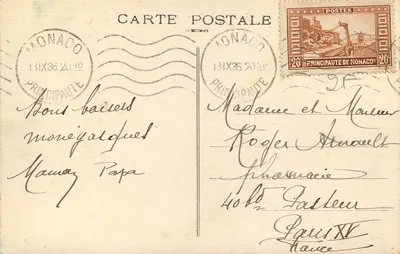 CARTE POSTALE
MONACO
PRINCIPAUTÉ
MONACO
PRINCIPAUTÉ
POSTES
20c PRINCIPAUTE DE MONACO 20c
Bons baisers
monégasques
Maman Papa
Madame et Monsieur
Roger Arnault
pharmacie
40 Bd Pasteur
Paris XV
France